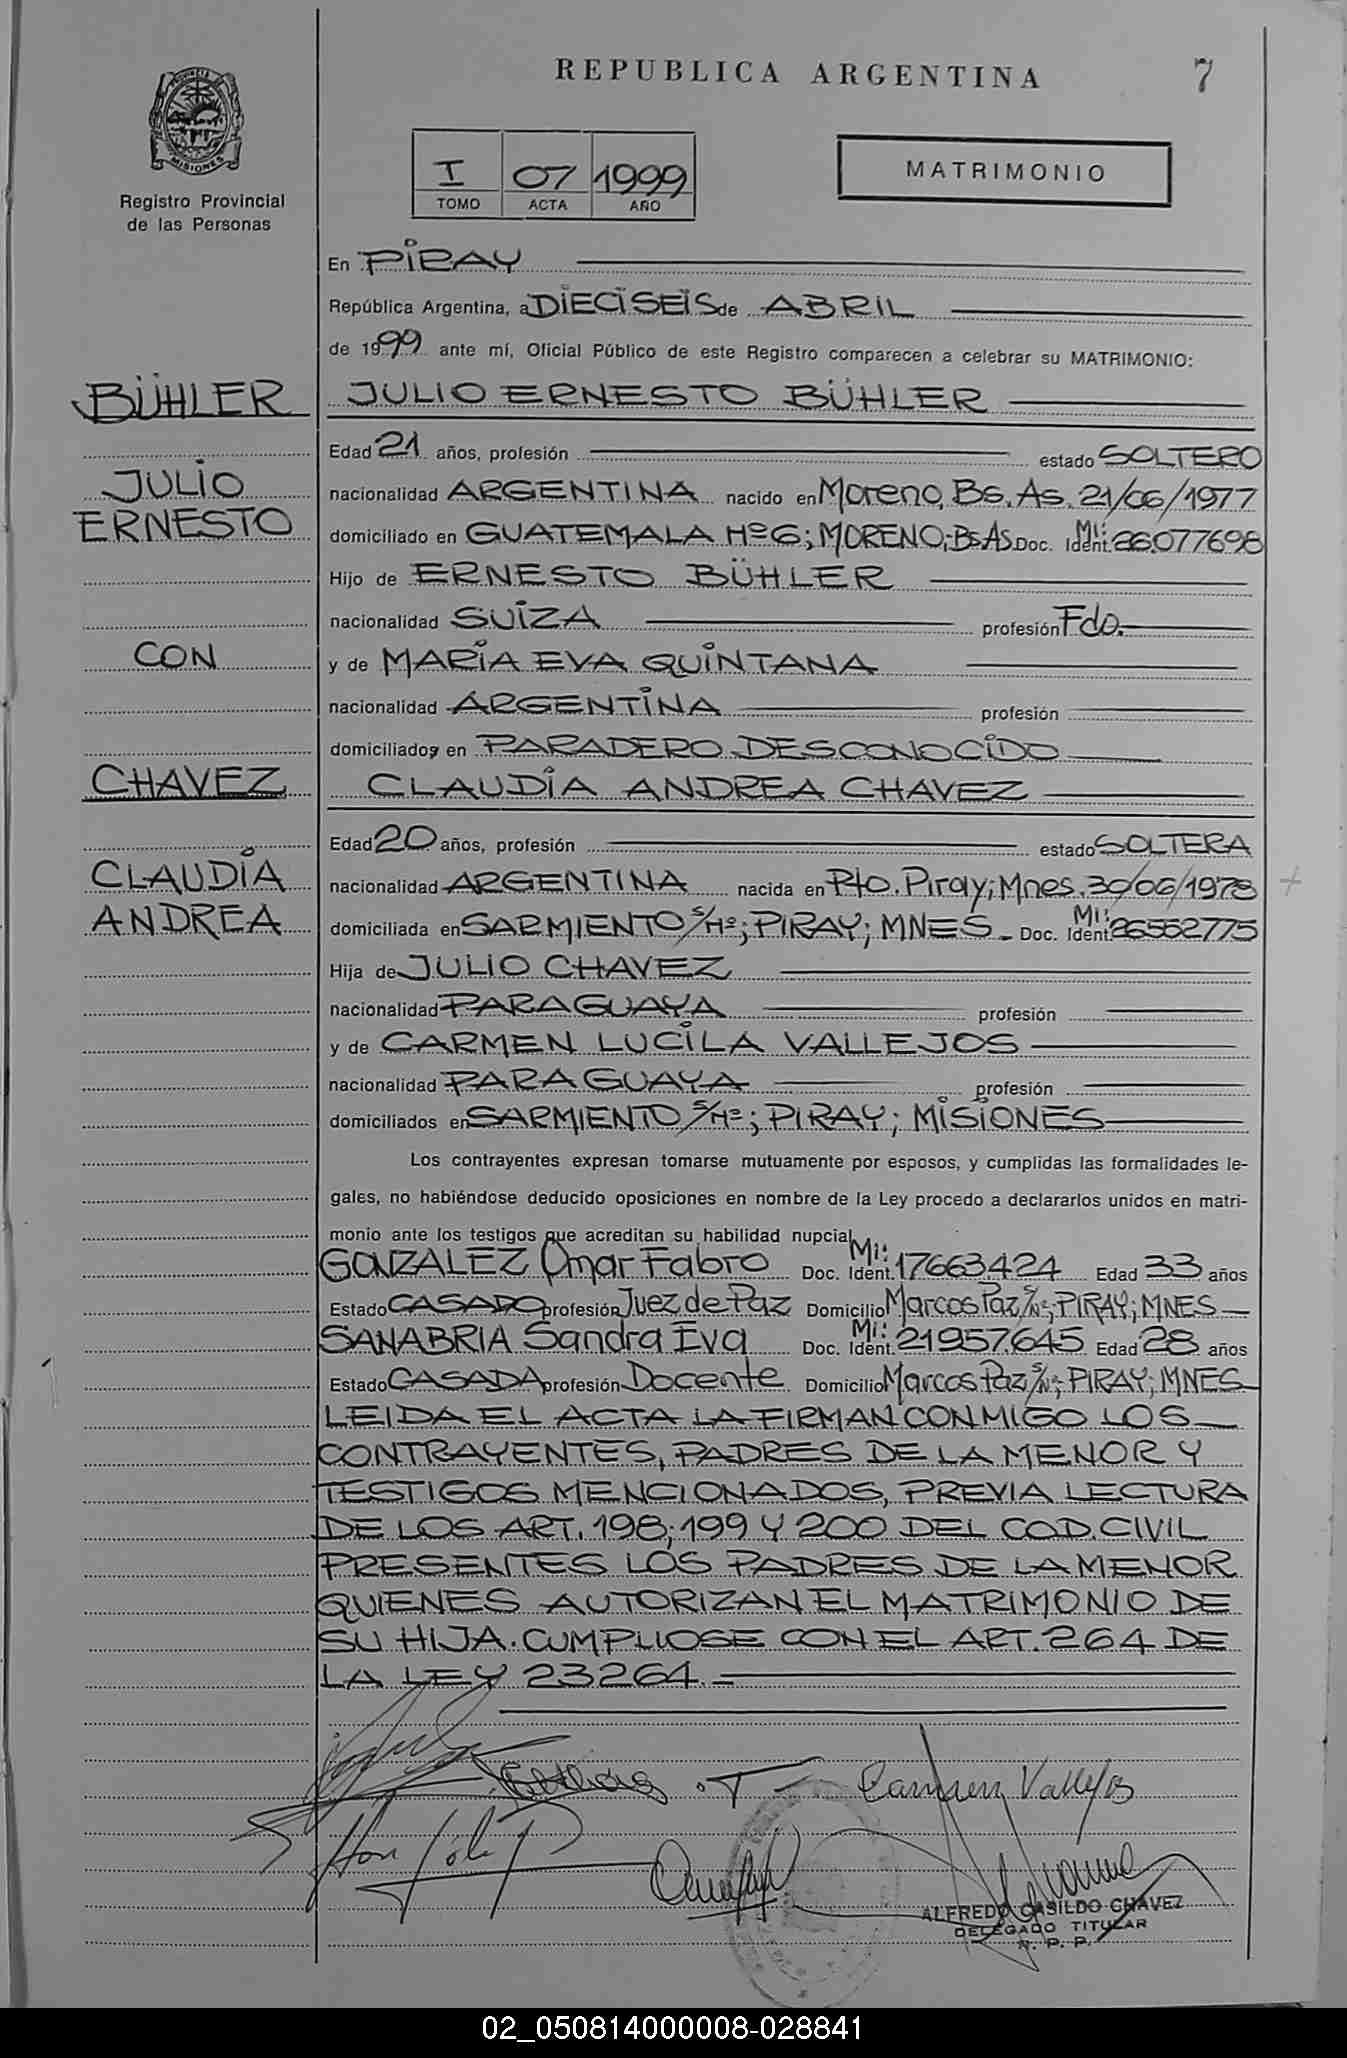 REPUBLICA ARGENTINA
7
PROVINCIA DE MISIONES
Registro Provincial
de las Personas
I 07 1999
TOMO ACTA AÑO
MATRIMONIO
En PIRAY
República Argentina, a DIECISEIS de ABRIL
de 1999 ante mí, Oficial Público de este Registro comparecen a celebrar su MATRIMONIO:
BÜHLER JULIO ERNESTO BÜHLER
Edad 21 años, profesión estado SOLTERO
JULIO nacionalidad ARGENTINA nacido en Moreno, Bs. As. 21/06/1977
ERNESTO domiciliado en GUATEMALA Nº 6; MORENO; Bs As Doc. Ident. MI: 26.077698
Hijo de ERNESTO BÜHLER
nacionalidad SUIZA profesión Fdo.
CON y de MARIA EVA QUINTANA
nacionalidad ARGENTINA profesión
domiciliados en PARADERO DESCONOCIDO
CHAVEZ CLAUDIA ANDREA CHAVEZ
Edad 20 años, profesión estado SOLTERA
CLAUDIA nacionalidad ARGENTINA nacida en Pto. Piray; Mnes. 30/06/1978
ANDREA domiciliada en SARMIENTO S/Nº; PIRAY; MNES Doc. Ident. MI: 26552775
Hija de JULIO CHAVEZ
nacionalidad PARAGUAYA profesión
y de CARMEN LUCILA VALLEJOS
nacionalidad PARAGUAYA profesión
domiciliados en SARMIENTO S/Nº; PIRAY; MISIONES
Los contrayentes expresan tomarse mutuamente por esposos, y cumplidas las formalidades le-
gales, no habiéndose deducido oposiciones en nombre de la Ley procedo a declararlos unidos en matri-
monio ante los testigos que acreditan su habilidad nupcial
GONZALEZ Omar Fabro Doc. Ident. MI: 17663.424 Edad 33 años
Estado CASADO profesión Juez de Paz Domicilio Marcos Paz S/Nº; PIRAY; MNES
SANABRIA Sandra Eva Doc. Ident. MI: 21957.645 Edad 28 años
Estado CASADA profesión Docente Domicilio Marcos Paz S/Nº; PIRAY; MNES
LEIDA EL ACTA LA FIRMAN CONMIGO LOS
CONTRAYENTES, PADRES DE LA MENOR Y
TESTIGOS MENCIONADOS, PREVIA LECTURA
DE LOS ART. 198; 199 Y 200 DEL COD. CIVIL
PRESENTES LOS PADRES DE LA MENOR
QUIENES AUTORIZAN EL MATRIMONIO DE
SU HIJA. CUMPLIOSE CON EL ART. 264 DE
LA LEY 23264.
Carmen Vallejos
ALFREDO CASILDO CHAVEZ
DELEGADO TITULAR
R. P. P.
02_050814000008-028841